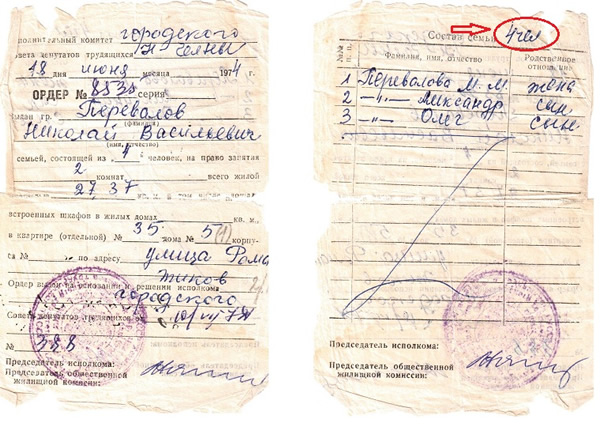 полнительный комитет городского
Совета депутатов трудящихся Н Челны
18 дня июня месяца 1974 г.
ОРДЕР № серия
Выдан гр. Перевалов
(фамилия)
Николай Васильевич
(имя, отчество)
семьей, состоящей из 4 человек, на право занятия
2 комнат всего жилой
27,37 кв. м, в том числе
встроенных шкафов в жилых домах кв. м,
в квартире (отдельной) № 35 дома № 5 (1) корпу-
са № по адресу улица Рома
жиков
Ордер выдан на основании решения исполкома
городского
Совета депутатов трудящихся от
№ 388
Председатель исполкома:
Председатель общественной
жилищной комиссии:
Состав семьи 4 чел
Фамилия, имя, отчество Родственное
отношение
1 Перевалова М. М. жена
2 —"— Александр сын
3 —"— Олег сын
Председатель исполкома:
Председатель общественной
жилищной комиссии: